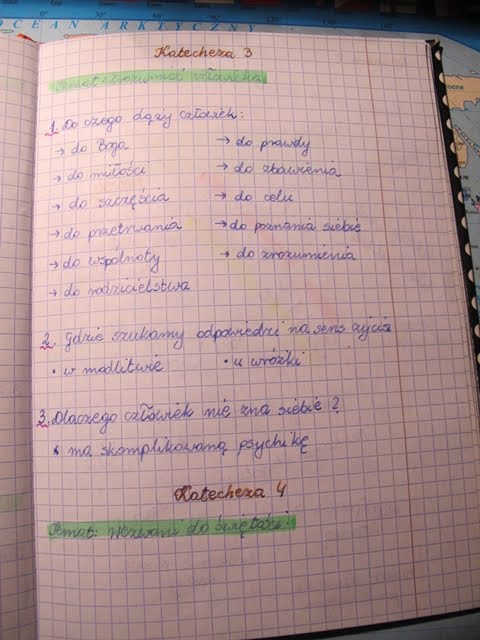 OCEAN ARKTYCZNY
Katecheza 3
Temat: Zrozumieć człowieka
1. Do czego dąży człowiek:
→ do Boga → do prawdy
→ do miłości → do zbawienia
→ do szczęścia → do celu
→ do przetrwania → do poznania siebie
→ do wspólnoty → do zrozumienia
→ do rodzicielstwa
2. Gdzie szukamy odpowiedzi na sens życia
• w modlitwie • u wróżki
3. Dlaczego człowiek nie zna siebie?
• ma skomplikowaną psychikę
Katecheza 4
Temat: Wezwani do świętości.